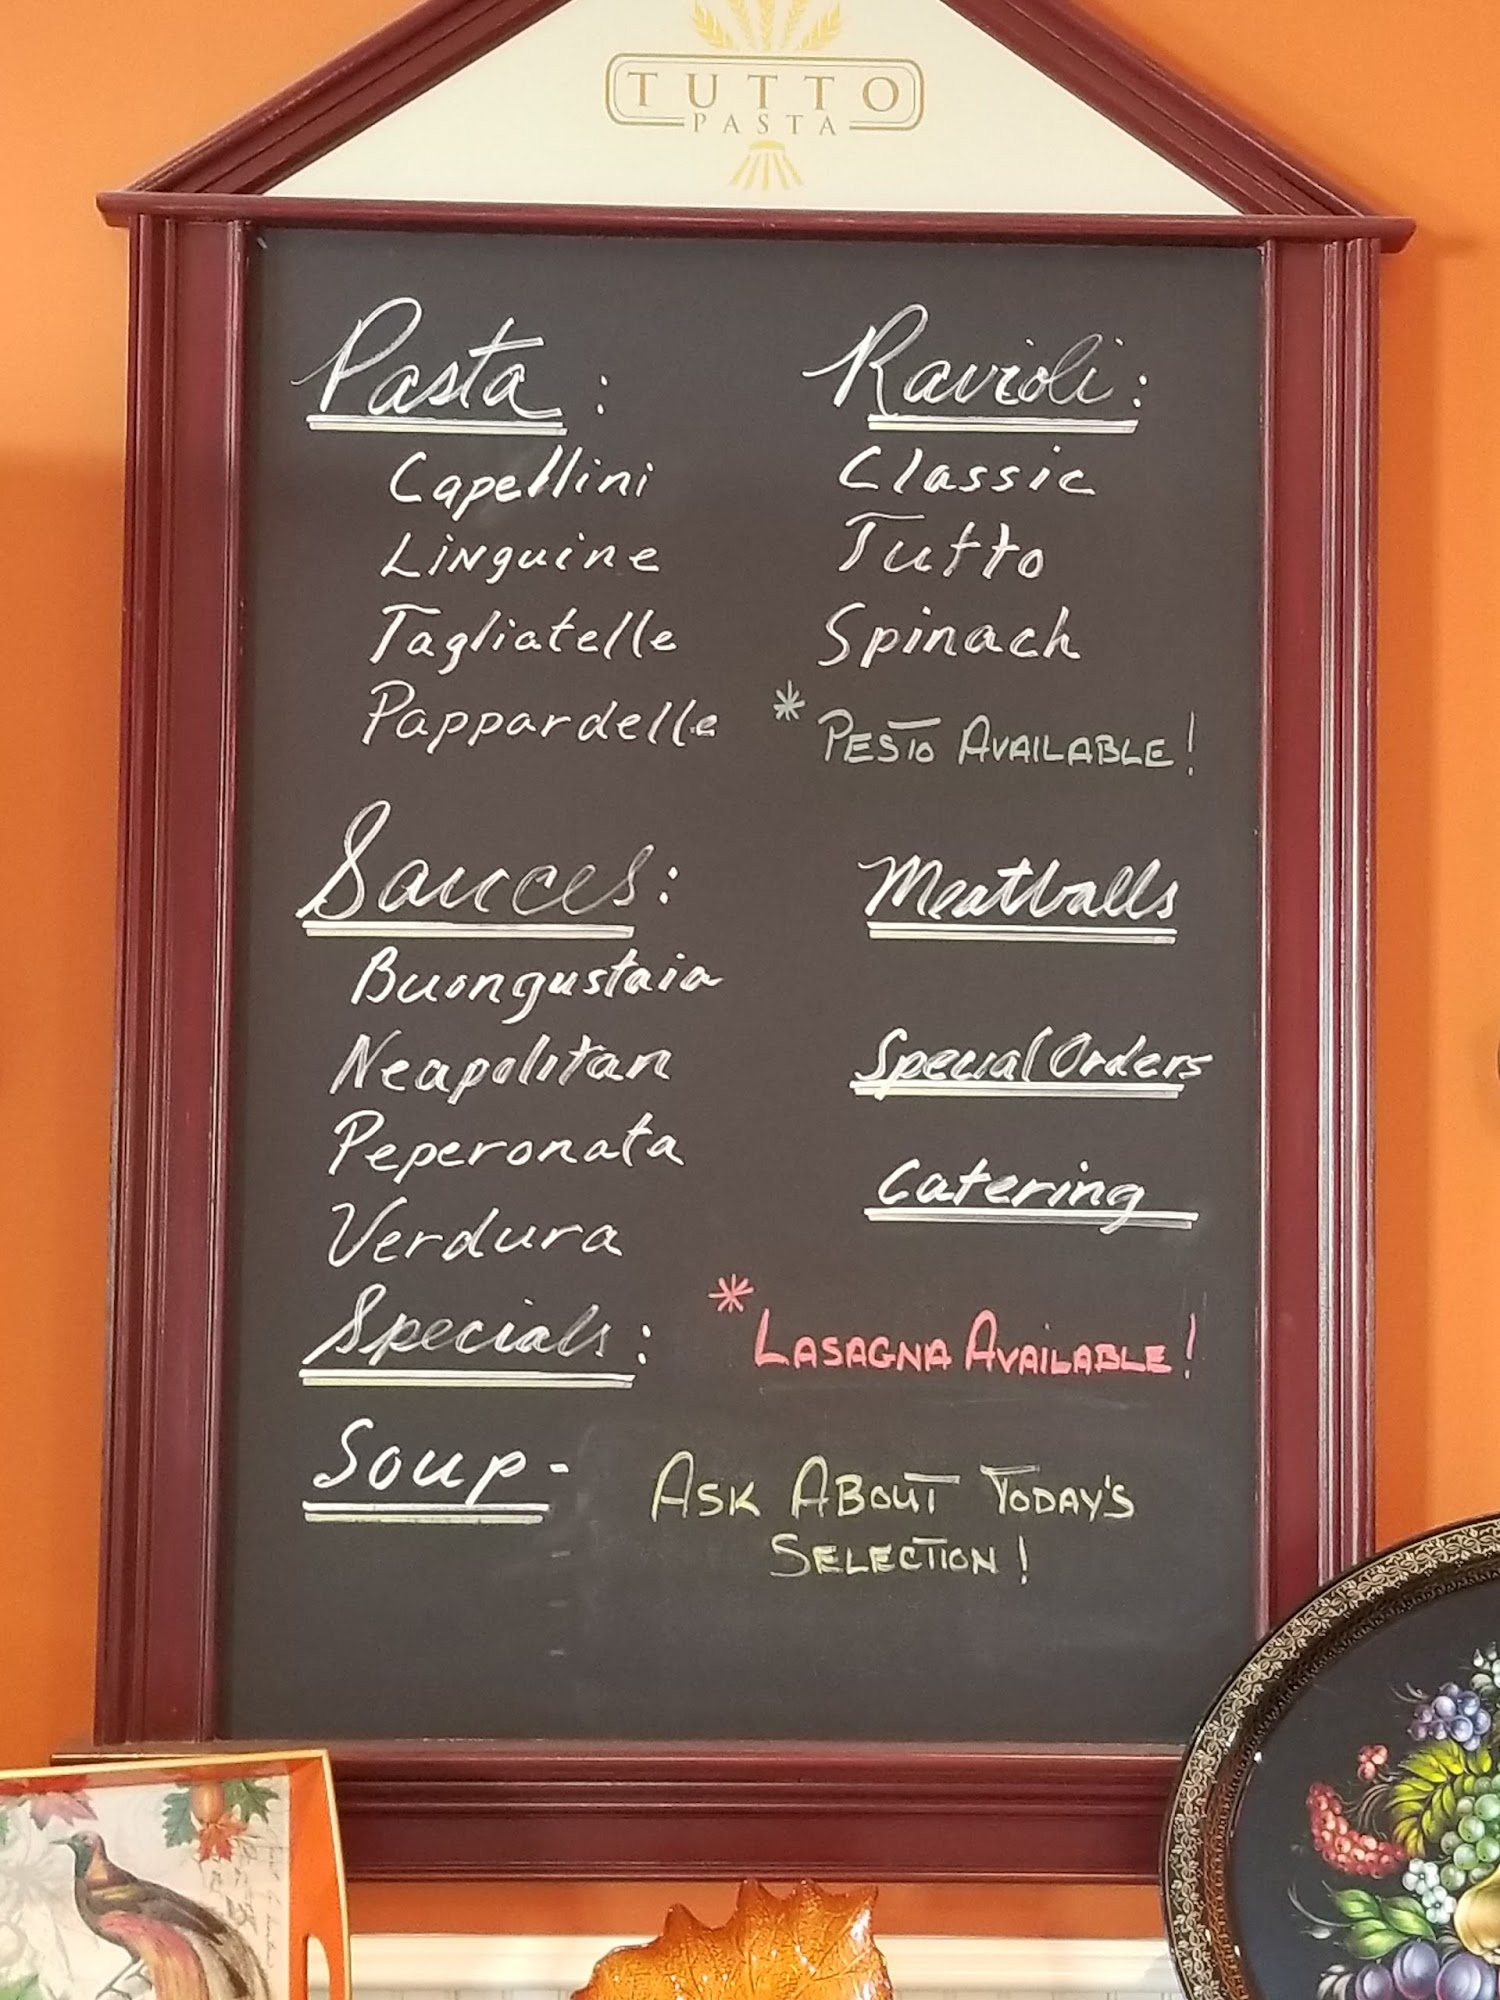 TUTTO
PASTA
Pasta :
Capellini
Linguine
Tagliatelle
Pappardelle
Ravioli :
Classic
Tutto
Spinach
* PESTO AVAILABLE!
Sauces :
Buongustaia
Neapolitan
Peperonata
Verdura
Meatballs
Special Orders
Catering
Specials :
* LASAGNA AVAILABLE!
Soup -
ASK ABOUT TODAY'S
SELECTION!